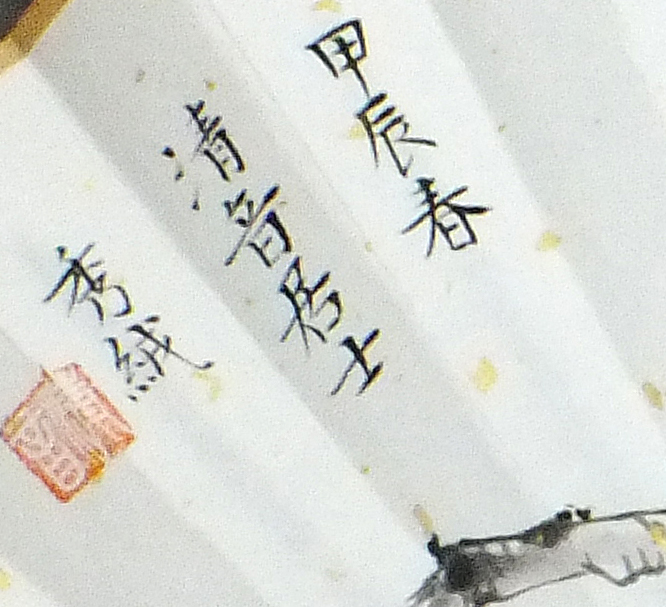 甲辰春
清音居士
秀絨